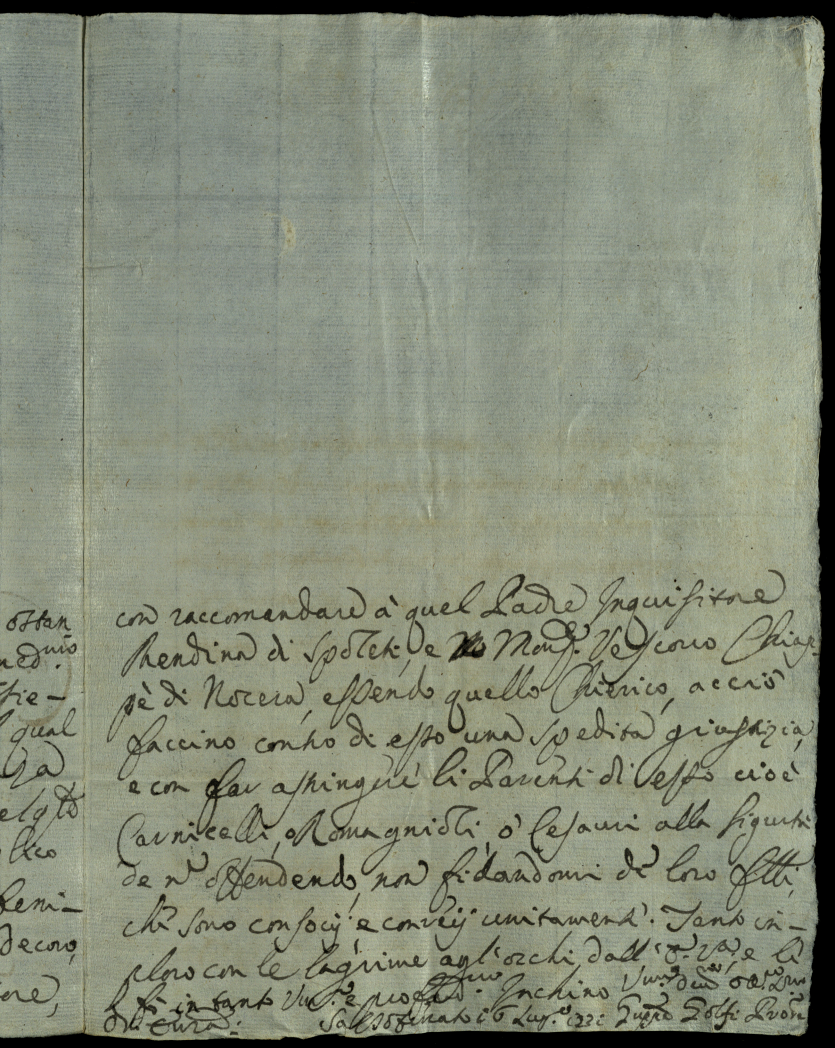 ottan
ned.mo
qual
lico
beni-
decoro,
ore,
con raccomandare à quel Padre Inquisitore
Rendina di Spoleti, e Mons.r Vescovo Chiap-
pè di Nocera, essendo quello Chierico, acciò
faccino contro di esso una spedita giustizia,
e con far astringere li Parenti di esso cioè
Carnicelli, o Romagnioli, ò Cesauri alla sigurtà
de n. offendendo, non fidandomi de loro
che sono consocij e convej unitamente. Tanto im-
ploro con le lagrime agl'occhi dall' e li
fò intanto e profond.mo Inchino
di Sassoferrato 16 Lug.o Golfi